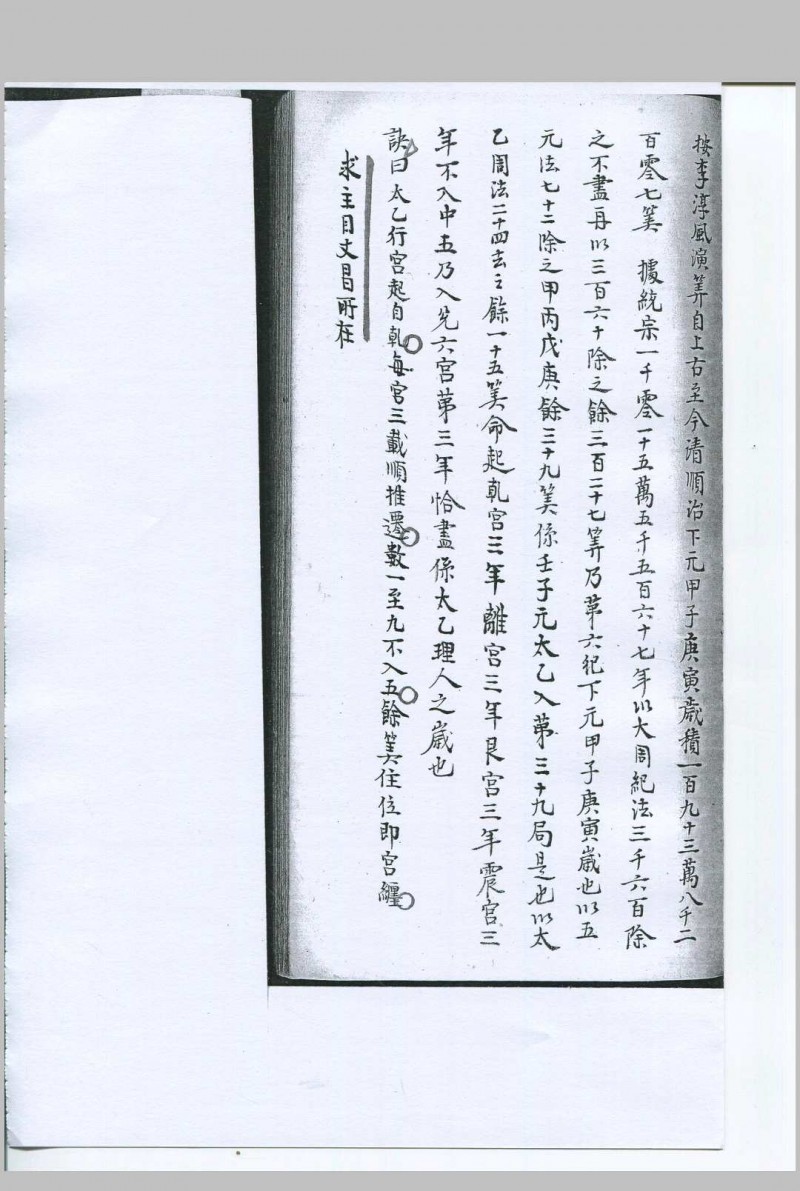 按李淳風演筭自上古至今清順治下元甲子庚寅歲積一百九十三萬八千二
百零七筭　據統宗一千零一十五萬五千五百六十七年以大周紀法三千六百除
之不盡再以三百六十除之餘三百二十七筭乃第六紀下元甲子庚寅歲也以五
元法七十二除之甲丙戊庚餘三十九筭係壬子元太乙入第三十九局是也以太
乙周法二十四去之餘一十五筭命起乾宮三年離宮三年艮宮三年震宮三
年不入中五乃入兌六宮第三年恰盡係太乙理人之歲也
訣曰太乙行宮起自乾每宮三載順推遷數一至九不入五餘筭住位即宮纏
求主目文昌所在